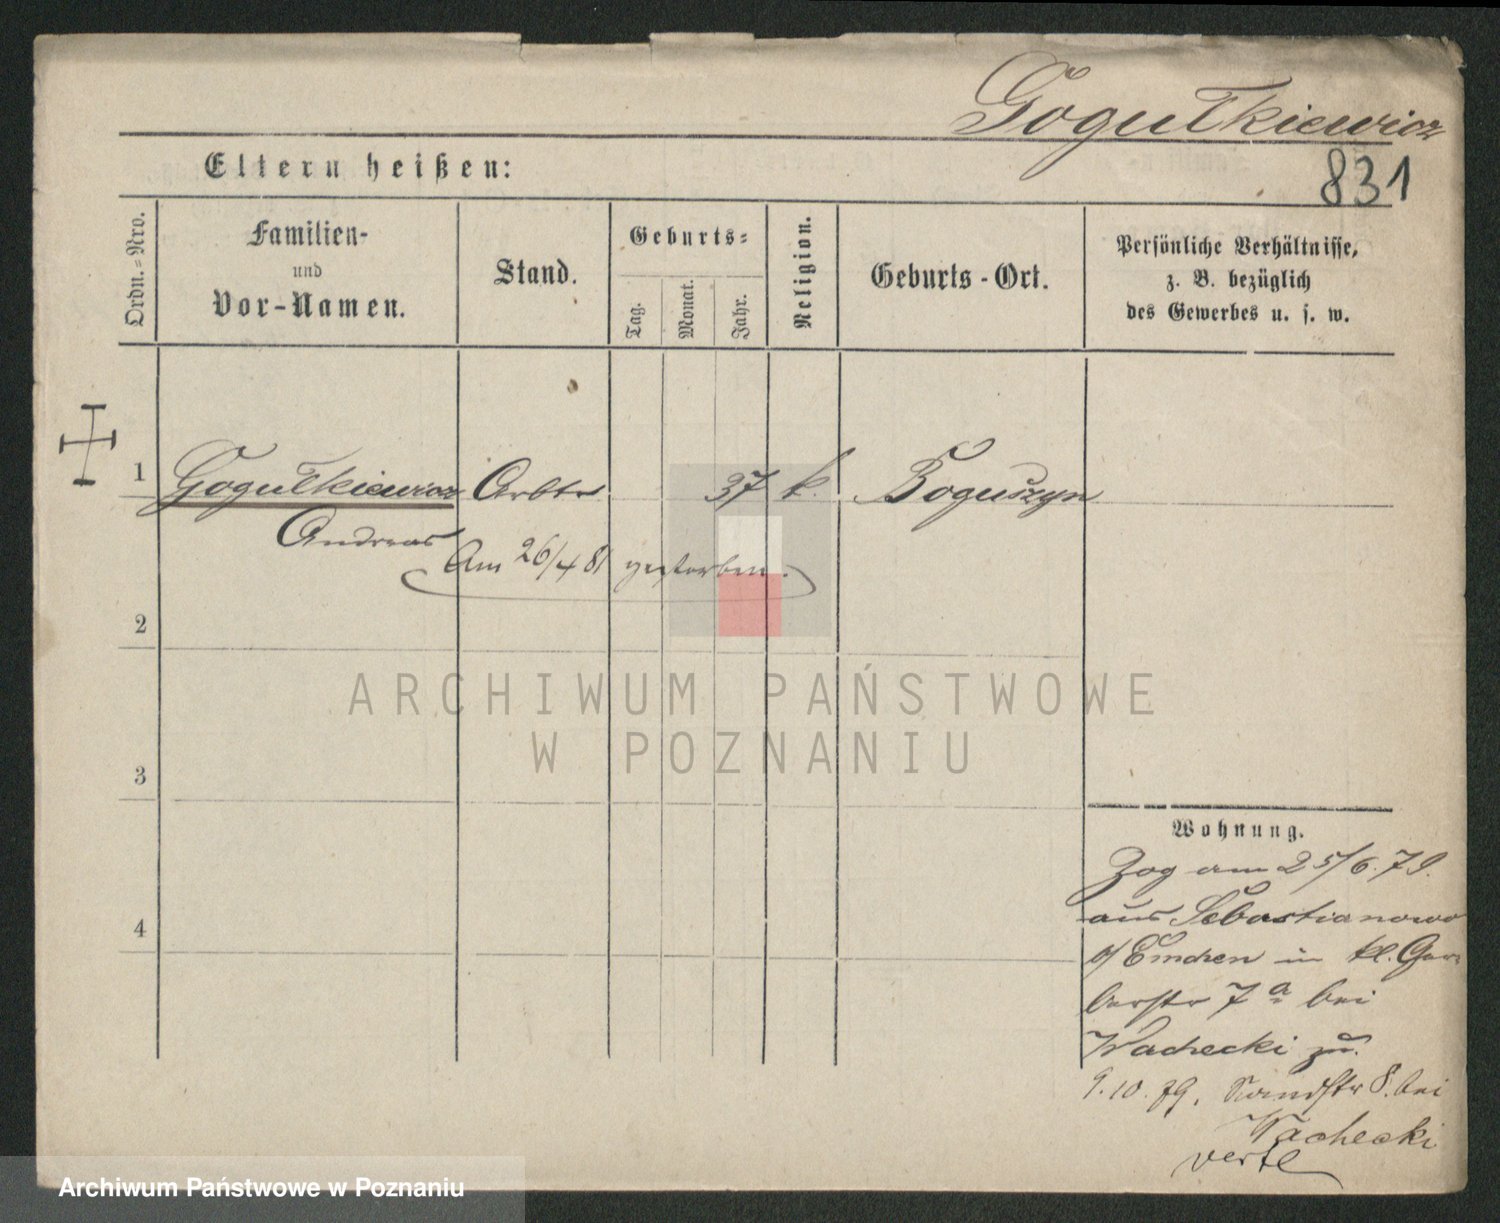 Gogułkiewicz
831
Eltern heißen:
Ordn.-Nro.
Familien-
und
Vor-Namen.
Stand.
Geburts-
Tag.
Monat.
Jahr.
Religion.
Geburts-Ort.
Persönliche Verhältnisse,
z. B. bezüglich
des Gewerbes u. s. w.
1 Gogułkiewicz Arbtr 37 k. Boguszyn
Andreas
Am 26/4 81 gestorben.
2
3
4
Wohnung.
Zog am 25/6. 79.
aus Sebastianowo
b/ Emchen in kl. Ger-
berstr 7 a bei
Wachecki zu.
9.10.79. Sandstr 8. bei
Wachecki
verte
ARCHIWUM PAŃSTWOWE
W POZNANIU
Archiwum Państwowe w Poznaniu